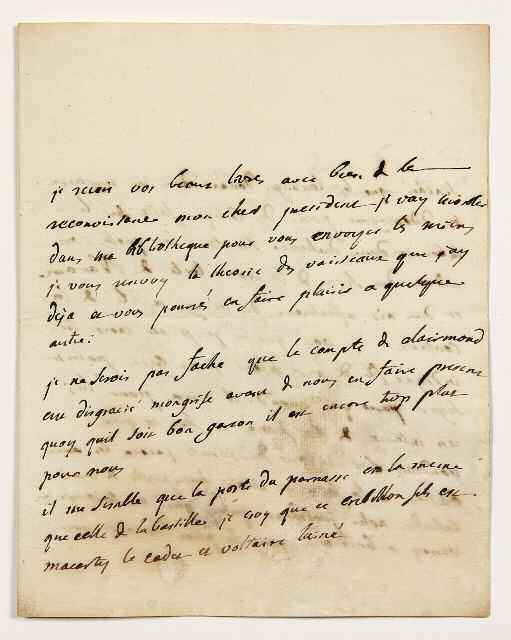 je recois vos beaux livres avec bien de la
reconoissance mon cher president je vay
dans ma bibliotheque pour vous envoyer les miens
je vous renvoy la theorie des vaisseaux que j'ay
deja et vous pourrés en faire plaisir a quelque
autre.
je ne serois pas faché que le compte de clairmond
eut disgracié mongrif avant de nous en faire present
quoy quil soit bon garson il est encore trop plat
pour nous
il me semble que la porte du parnasse est la meme
que celle de la bastille je croy que ce crebillon fils est
le cadet et voltaire lainé